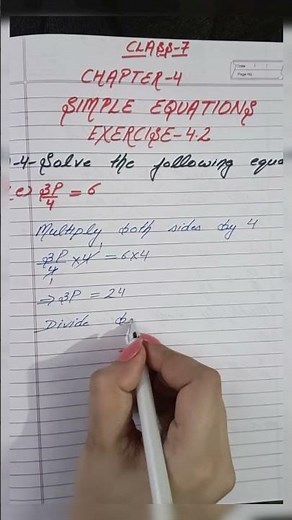 CLASS-7
CHAPTER-4
SIMPLE EQUATIONS
EXERCISE-4.2
-4-Solve the following equa
e) 3P/4 = 6
Multiply both sides by 4
3P/4 × 4 = 6×4
⇒ 3P = 24
Divide